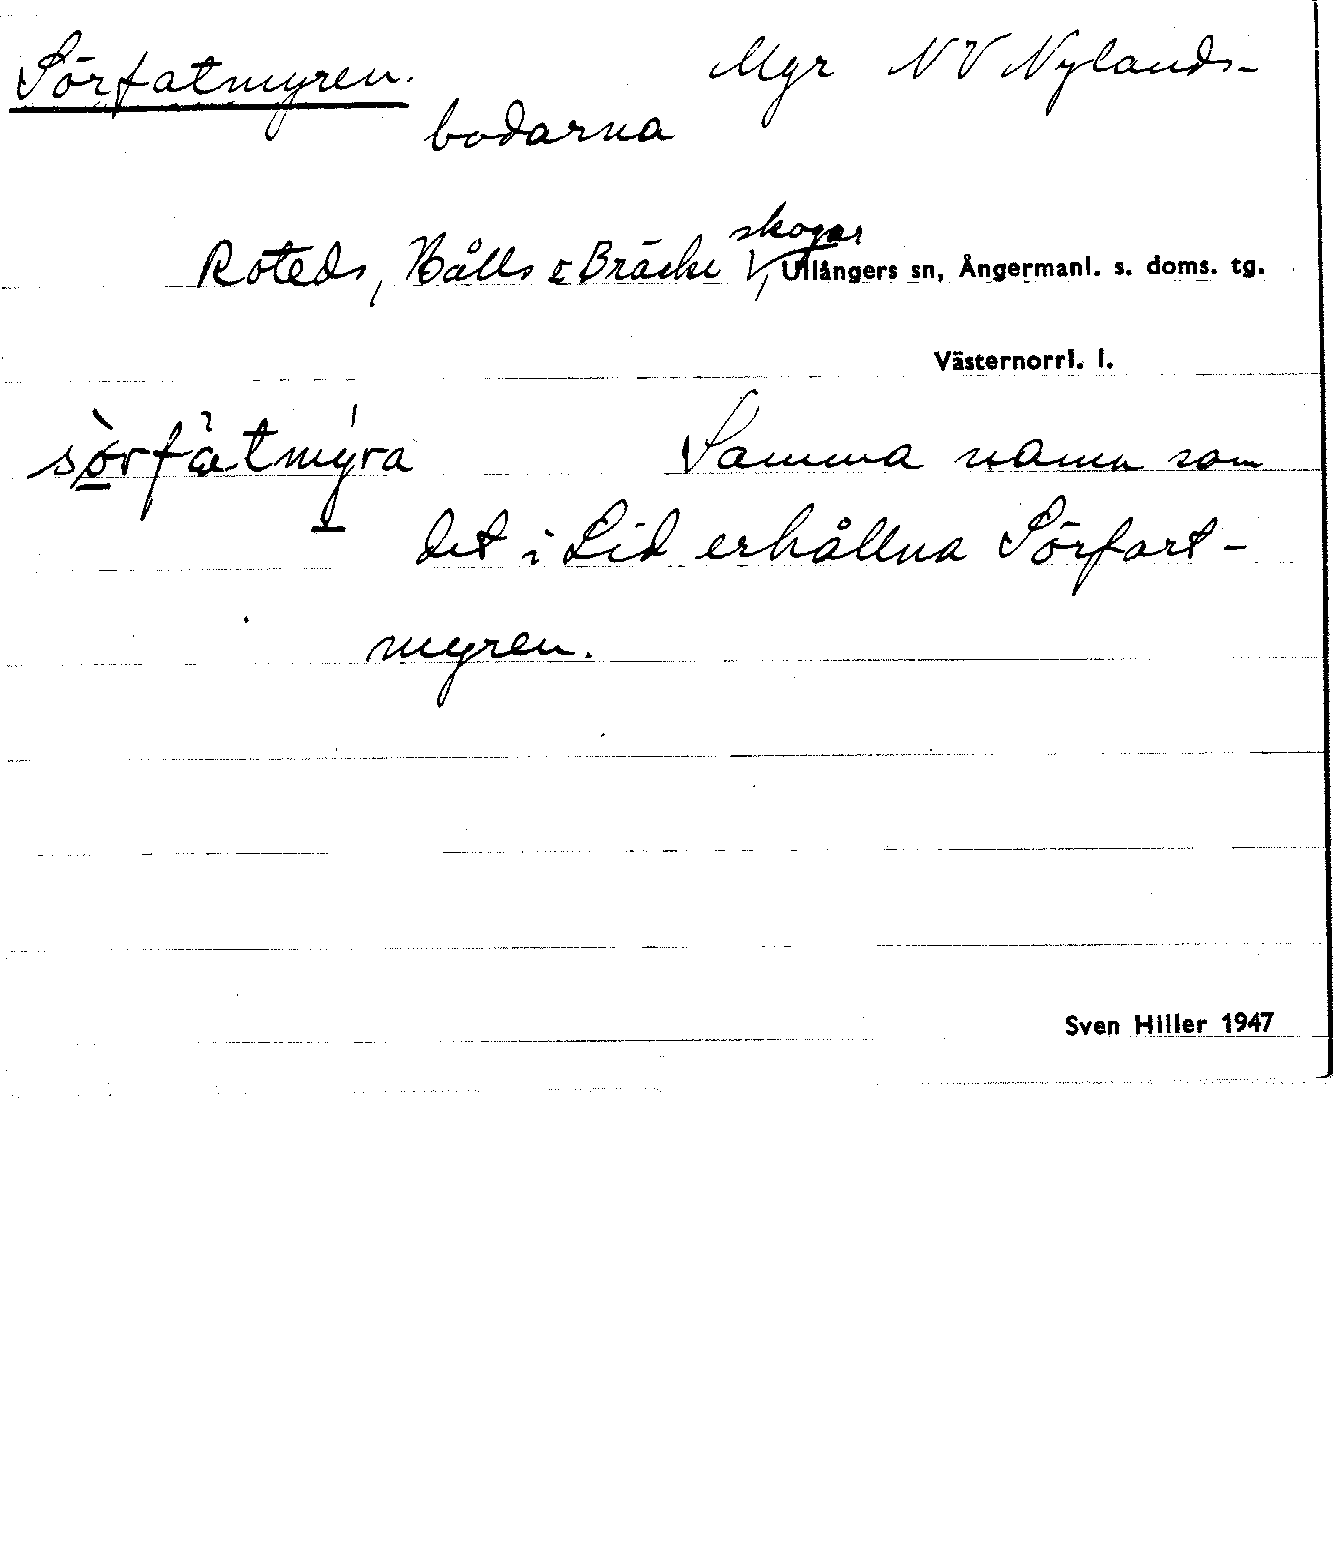 Sörfatmyren. Mgr NV Nylands-
bodarna
skogar
Roteds, Hålls & Bräcke V, Ullångers sn, Ångermanl. s. doms. tg.
Västernorrl. l.
Samma namn som
det i Lid erhållna Sörfart-
myren.
Sven Hiller 1947